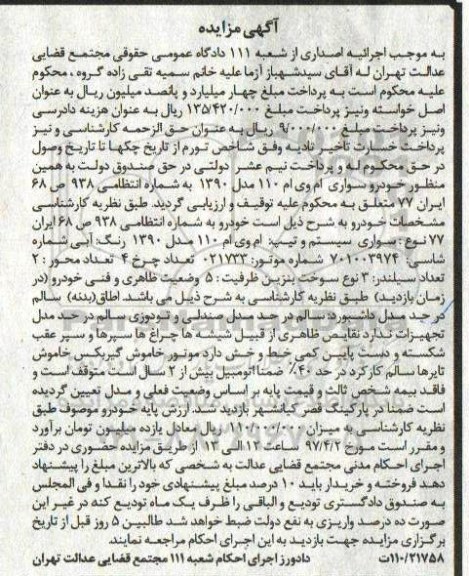 آگهی مزایده
به موجب اجرائیه اصداری از شعبه ۱۱۱ دادگاه عمومی حقوقی مجتمع قضایی
عدالت تهران له آقای سیدشهباز آزما علیه خانم سمیه تقی زاده گروه ، محکوم
علیه محکوم است به پرداخت مبلغ چهار میلیارد و پانصد میلیون ریال به عنوان
اصل خواسته ونیز پرداخت مبلغ ۱۳۵/۴۲۰/۰۰۰ ریال به عنوان هزینه دادرسی
ونیز پرداخت مبلغ ۹/۰۰۰/۰۰۰ ریال به عنوان حق الزحمه کارشناسی و نیز
پرداخت خسارت تأخیر تادیه وفق شاخص تورم از تاریخ چکها تا تاریخ وصول
در حق محکوم له و پرداخت نیم عشر دولتی در حق صندوق دولت به همین
منظور خودرو سواری ام وی ام ۱۱۰ مدل ۱۳۹۰ به شماره انتظامی ۹۳۸ ص ۶۸
ایران ۷۷ متعلق به محکوم علیه توقیف و ارزیابی گردید. طبق نظریه کارشناسی
مشخصات خودرو به شرح ذیل است خودرو به شماره انتظامی ۹۳۸ ص ۶۸ ایران
۷۷ نوع : سواری سیستم و تیپ: ام وی ام ۱۱۰ مدل ۱۳۹۰ رنگ: آبی شماره
شاسی: ۷۰۱۰۰۳۹۷۴ شماره موتور: ۰۲۱۷۳۳ تعداد چرخ ۴ تعداد محور : ۲
تعداد سیلندر: ۳ نوع سوخت بنزین ظرفیت: ۵ وضعیت ظاهری و فنی خودرو (در
زمان بازدید) طبق نظریه کارشناسی به شرح ذیل می باشد. اطاق(بدنه) سالم
در حد مدل داشبورد: سالم در حد مدل صندلی و تودوزی سالم در حد مدل
تجهیزات ندارد نقایص ظاهری از قبیل شیشه ها چراغ ها سپرها و سپر عقب
شکسته و دست پایین کمی خط و خش دارد موتور خاموش گیربکس خاموش
تایرها سالم کارکرد در حد ۴۰٪ ضمنا اتومبیل بیش از ۲ سال است متوقف است و
فاقد بیمه شخص ثالث و قیمت پایه بر اساس وضعیت فعلی و مدل تعیین گردیده
است ضمنا در پارکینگ قصر کیانشهر بازدید شد. ارزش پایه خودرو موصوف طبق
نظریه کارشناسی به میزان ۱۱۰/۰۰۰/۰۰۰ ریال معادل یازده میلیون تومان برآورد
و مقرر است مورخ ۹۷/۴/۲ ساعت ۱۲ الی ۱۳ از طریق مزایده حضوری در دفتر
اجرای احکام مدنی مجتمع قضایی عدالت به شخصی که بالاترین مبلغ را پیشنهاد
دهد فروخته و خریدار باید ۱۰ درصد مبلغ پیشنهادی خود را نقدا و فی المجلس
به صندوق دادگستری تودیع و الباقی را ظرف یک ماه تودیع کند در غیر این
صورت ده درصد واریزی به نفع دولت ضبط خواهد شد طالبین ۵ روز قبل از تاریخ
برگزاری مزایده جهت بازدید به این اجرای احکام مراجعه نمایند.
۱۱۰/۲۱۷۵۸ت دادورز اجرای احکام شعبه ۱۱۱ مجتمع قضایی عدالت تهران